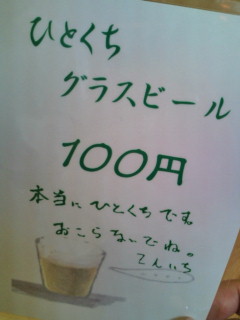 ひとくち
グラスビール
100円
本当にひとくちです。
おこらないでね。
てんいち